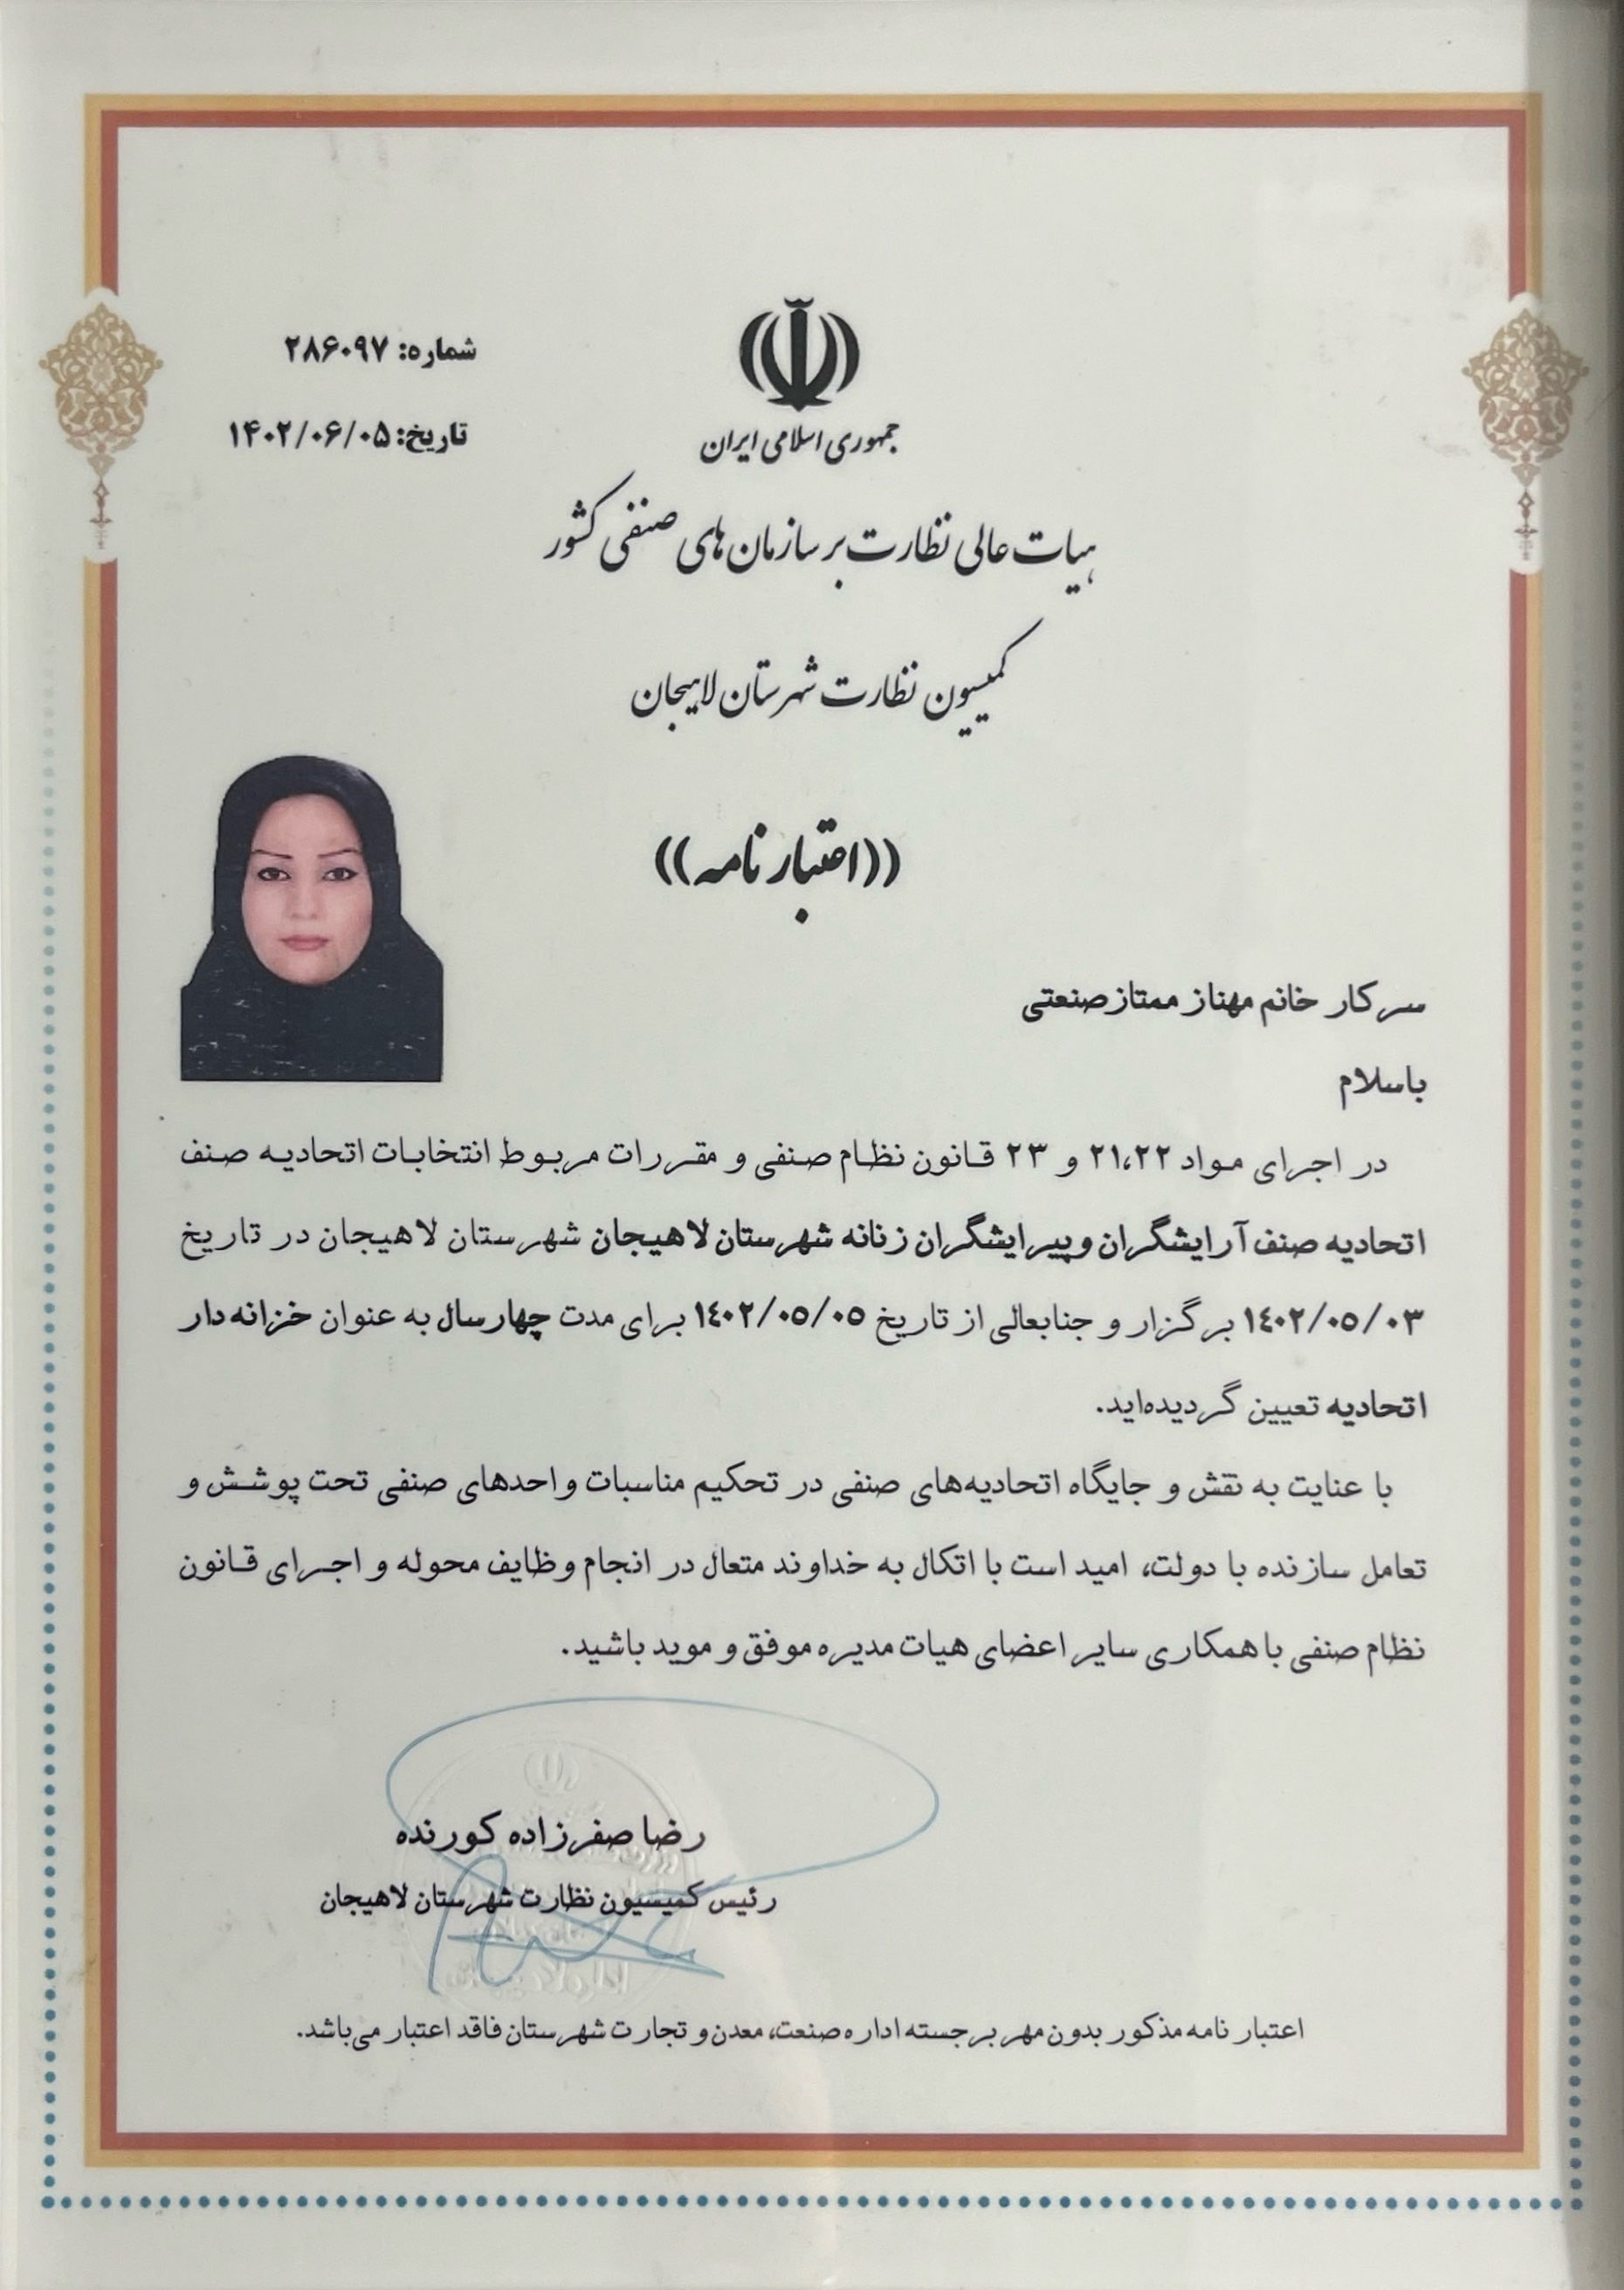 شماره: ۲۸۶۰۹۷
تاریخ: ۱۴۰۲/۰۶/۰۵
جمهوری اسلامی ایران
هیات عالی نظارت بر سازمان های صنفی کشور
کمیسیون نظارت شهرستان لاهیجان
((اعتبار نامه))
سرکار خانم مهناز ممتازصنعتی
باسلام
در اجرای مواد ۲۱،۲۲ و ۲۳ قانون نظام صنفی و مقررات مربوط انتخابات اتحادیه صنف
اتحادیه صنف آرایشگران وپیرایشگران زنانه شهرستان لاهیجان شهرستان لاهیجان در تاریخ
۱٤۰۲/۰۵/۰۳ برگزار و جنابعالی از تاریخ ۱٤۰۲/۰۵/۰۵ برای مدت چهارسال به عنوان خزانه دار
اتحادیه تعیین گردیده‌اید.
با عنایت به نقش و جایگاه اتحادیه‌های صنفی در تحکیم مناسبات واحدهای صنفی تحت پوشش و
تعامل سازنده با دولت، امید است با اتکال به خداوند متعال در انجام وظایف محوله و اجرای قانون
نظام صنفی با همکاری سایر اعضای هیات مدیره موفق و موید باشید.
رضا صفرزاده کورنده
رئیس کمیسیون نظارت شهرستان لاهیجان
اعتبار نامه مذکور بدون مهر برجسته اداره صنعت، معدن و تجارت شهرستان فاقد اعتبار می‌باشد.